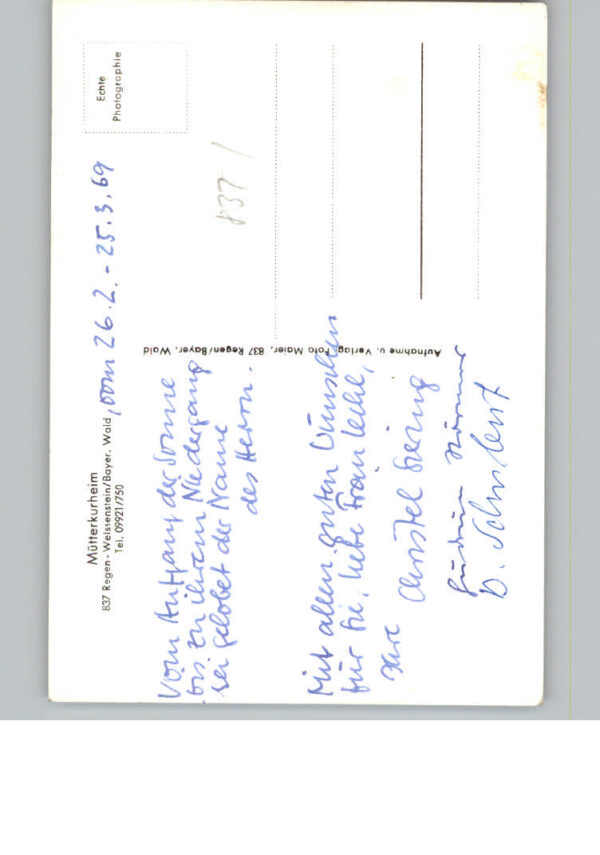 Mütterkurheim
837 Regen - Weissenstein/Bayer. Wald, vom 26.2. - 25.3.69
Tel. 09921/750
Vom Aufgang der Sonne
bis zu ihrem Niedergang
sei gelobet der Name
des Herrn.
Mit allen guten Wünschen
für Sie, liebe Frau
Ihre Christel
D. Schubert
Aufnahme u. Verlag: Foto Maier, 837 Regen/Bayer. Wald
Echte
Photographie
837 /